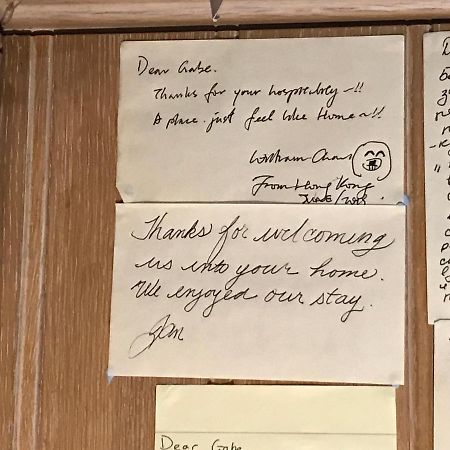 Dear Gabe.
Thanks for your hospitality ~!!
A place just feel like Home ~!!
William Chan
From Hong Kong
Thanks for welcoming
us into your home.
We enjoyed our stay.
Jim
Dear Gabe